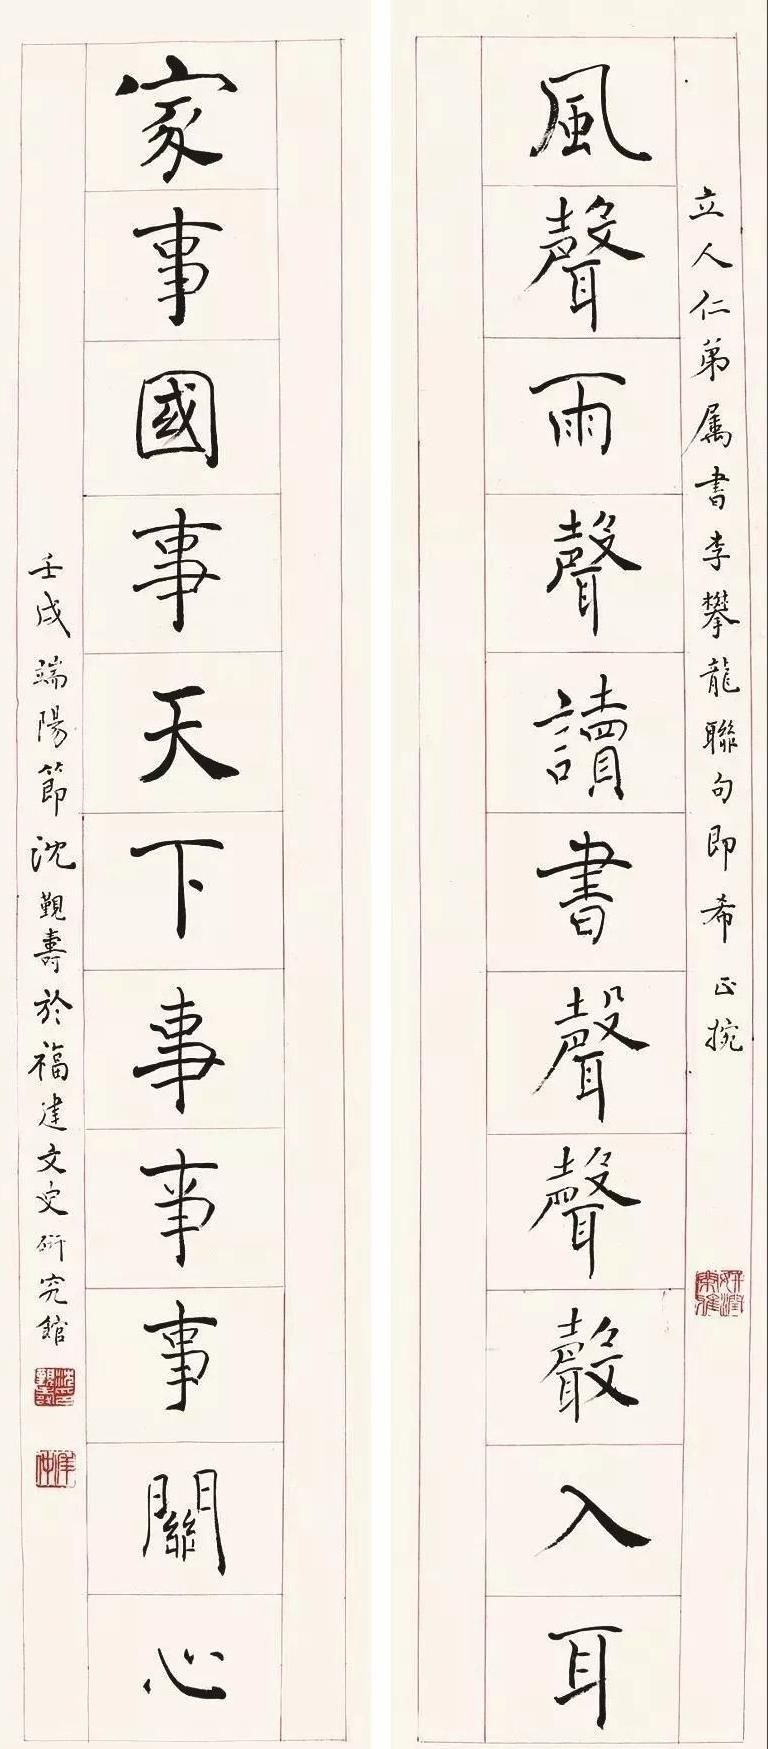 立人仁弟属書李攀龍聯句即希正捥
風聲雨聲讀書聲聲聲入耳
家事國事天下事事事關心
壬戌端陽節沈覲壽於福建文史研究館